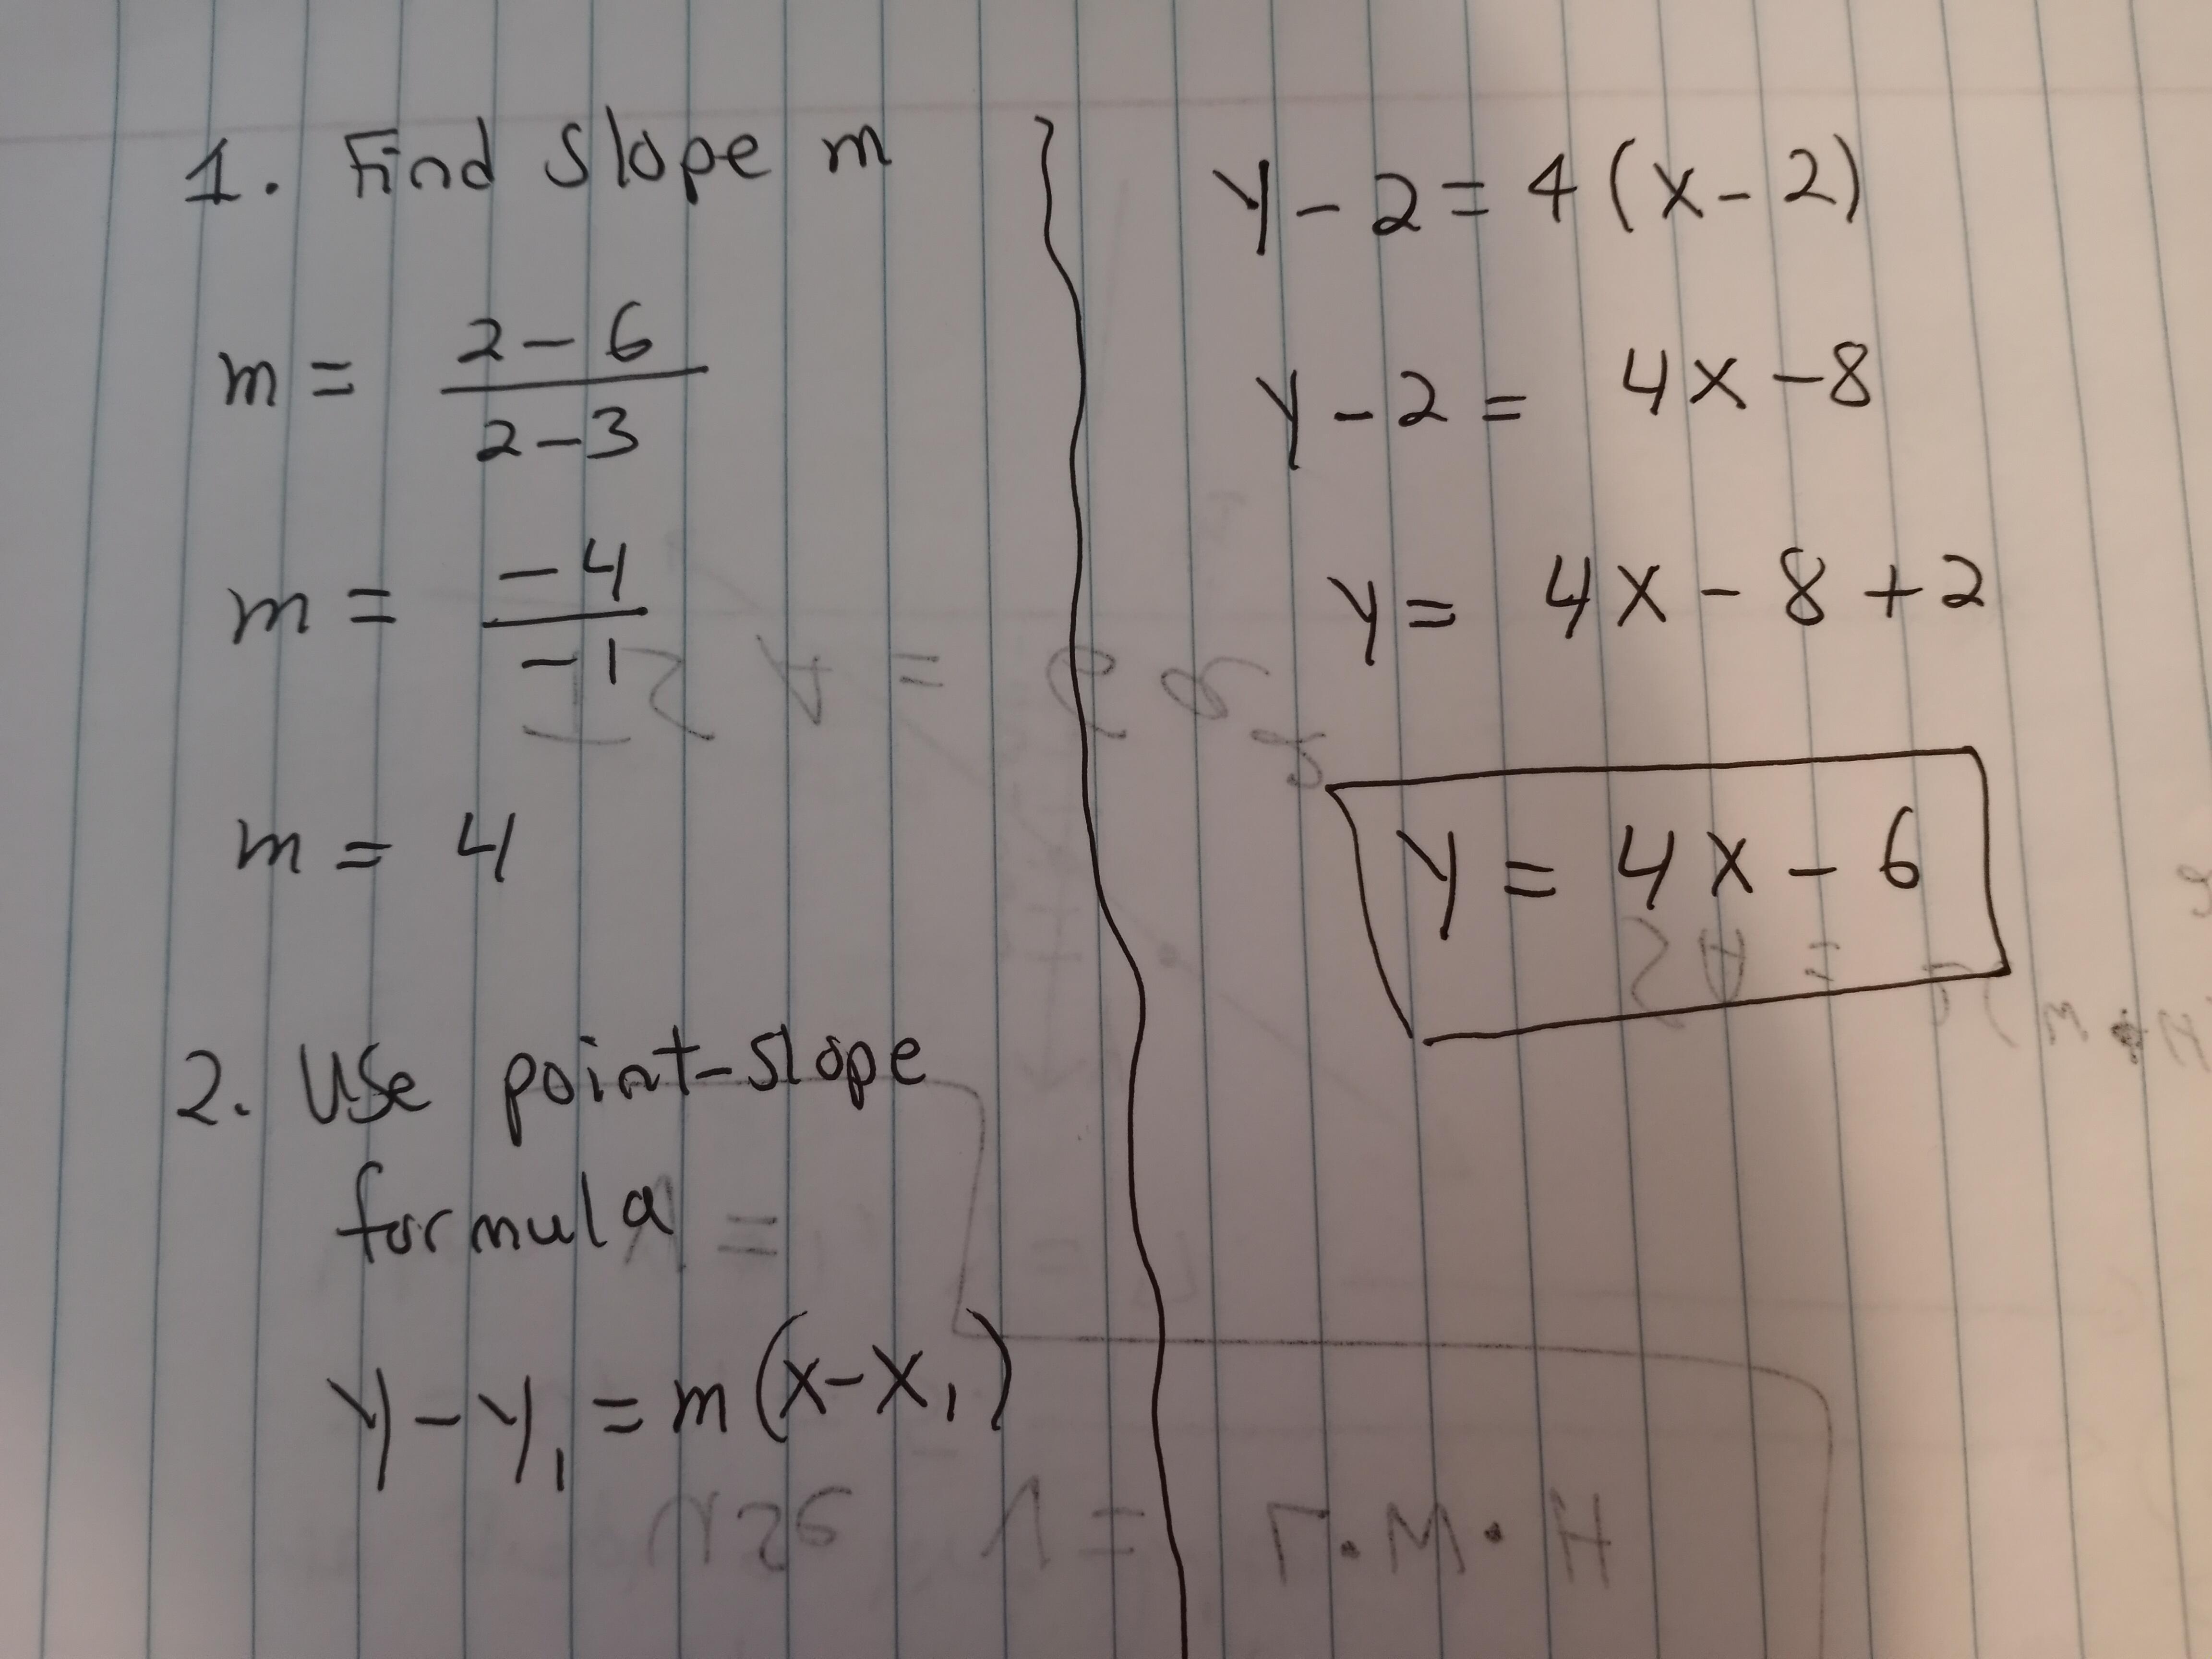 1. Find slope m
m = 2-6 / 2-3
m = -4 / -1
m = 4
2. Use point-slope
formula
y - y₁ = m(x - x₁)
y - 2 = 4(x - 2)
y - 2 = 4x - 8
y = 4x - 8 + 2
y = 4x - 6